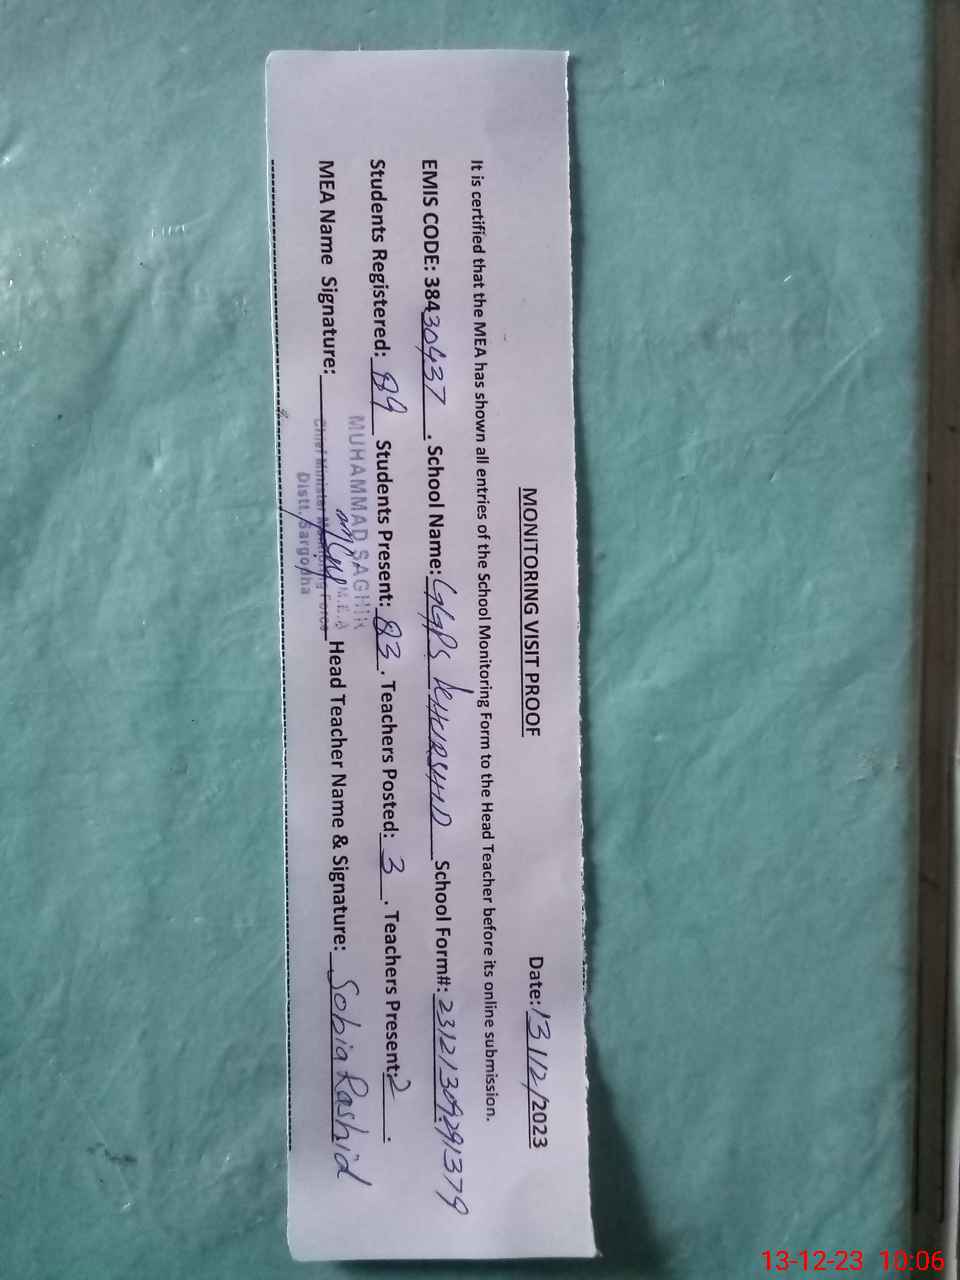 MONITORING VISIT PROOF Date: 13/12/2023
It is certified that the MEA has shown all entries of the School Monitoring Form to the Head Teacher before its online submission.
EMIS CODE: 38430437. School Name: GGPS KHURSHID School Form#: 23121309291379
Students Registered: 89 Students Present: 83. Teachers Posted: 3. Teachers Present: 2.
MUHAMMAD SAGHIR
M.E.A
MEA Name Signature: Head Teacher Name & Signature: Sobia Rashid
Chief Minister Monitoring Force
Distt. Sargodha
13-12-23 10:06